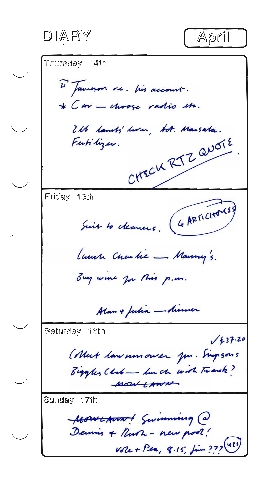 DIARY
April
Thursday 14th
Jameson re. his account.
* Car — choose radio etc.
2lb lambs' liver, bot. Marsala.
Fertilizer.
CHECK RTZ QUOTE
Friday 15th
Suit to cleaners.
4 ARTICHOKES
Lunch Charlie — Manny's.
Buy wine for this p.m.
Alan + Julia — dinner
Saturday 16th
√£37.20
Collect lawnmower fm. Simpsons
Biggles Club — lunch with Frank?
MOW LAWN
Sunday 17th
MOW LAWN! Swimming @
Dennis + Ruth — new pool!
Vole + Pea, 8.15, film ???